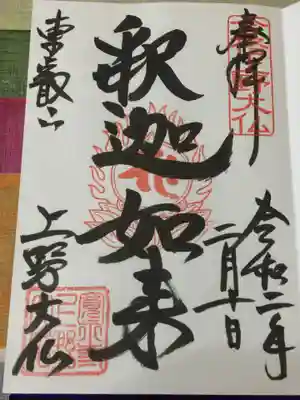 奉拝
野大仏
令和二年
二月十日
釈迦如来
東叡山
上野大仏